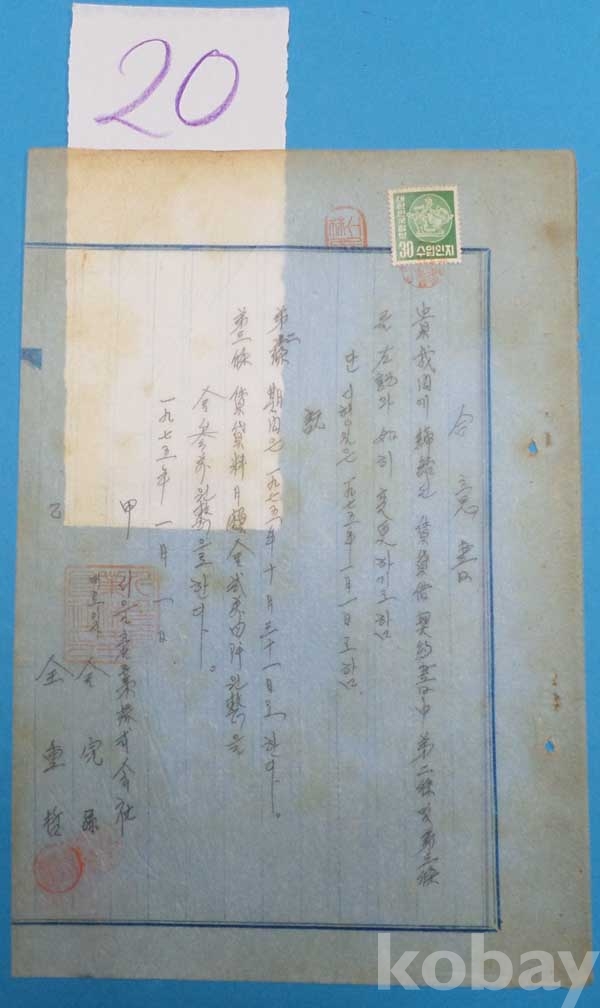 20
대한민국정부
30 수입인지
合意書
貴我間에 締結한 賃貸借契約書中 第二條 및 第三條
를 左記와 如히 変更하기로 함
但 시행일은 一九七五年 一月 一日로 함
記
第二條 期间은 一九七五年 十月 三十一日로 한다.
第三條 賃貸料 月額 金貳萬 원整을
金參萬원整으로 한다.
一九七五年 一月 一日
甲 産業株式会社
乙 全重哲
kobay